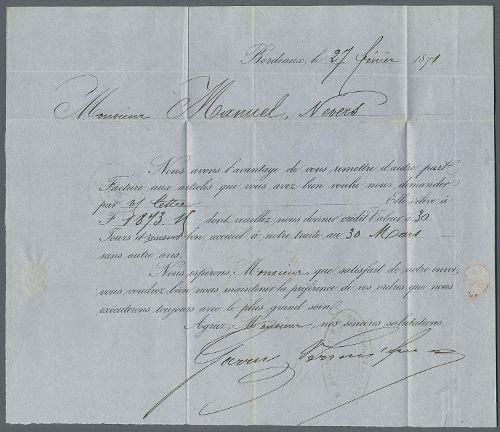 Bordeaux, le 27 février 1871
Monsieur Manuel, Nevers
Nous avons l'avantage de vous remettre d'autre part
Facture aux articles que vous avez bien voulu nous demander
par v/ lettre Elle s'élève à
F. 1873.15 dont veuillez nous donner crédit Valeur à 30
Jours et réserver bon accueil à notre traite au 30 Mars
sans autre avis.
Nous espérons, Monsieur que satisfait de notre envoi,
vous voudrez bien nous maintenir la préférence de vos ordres que nous
exécuterons toujours avec le plus grand soin.
Agréez, Monsieur, nos sincères salutations